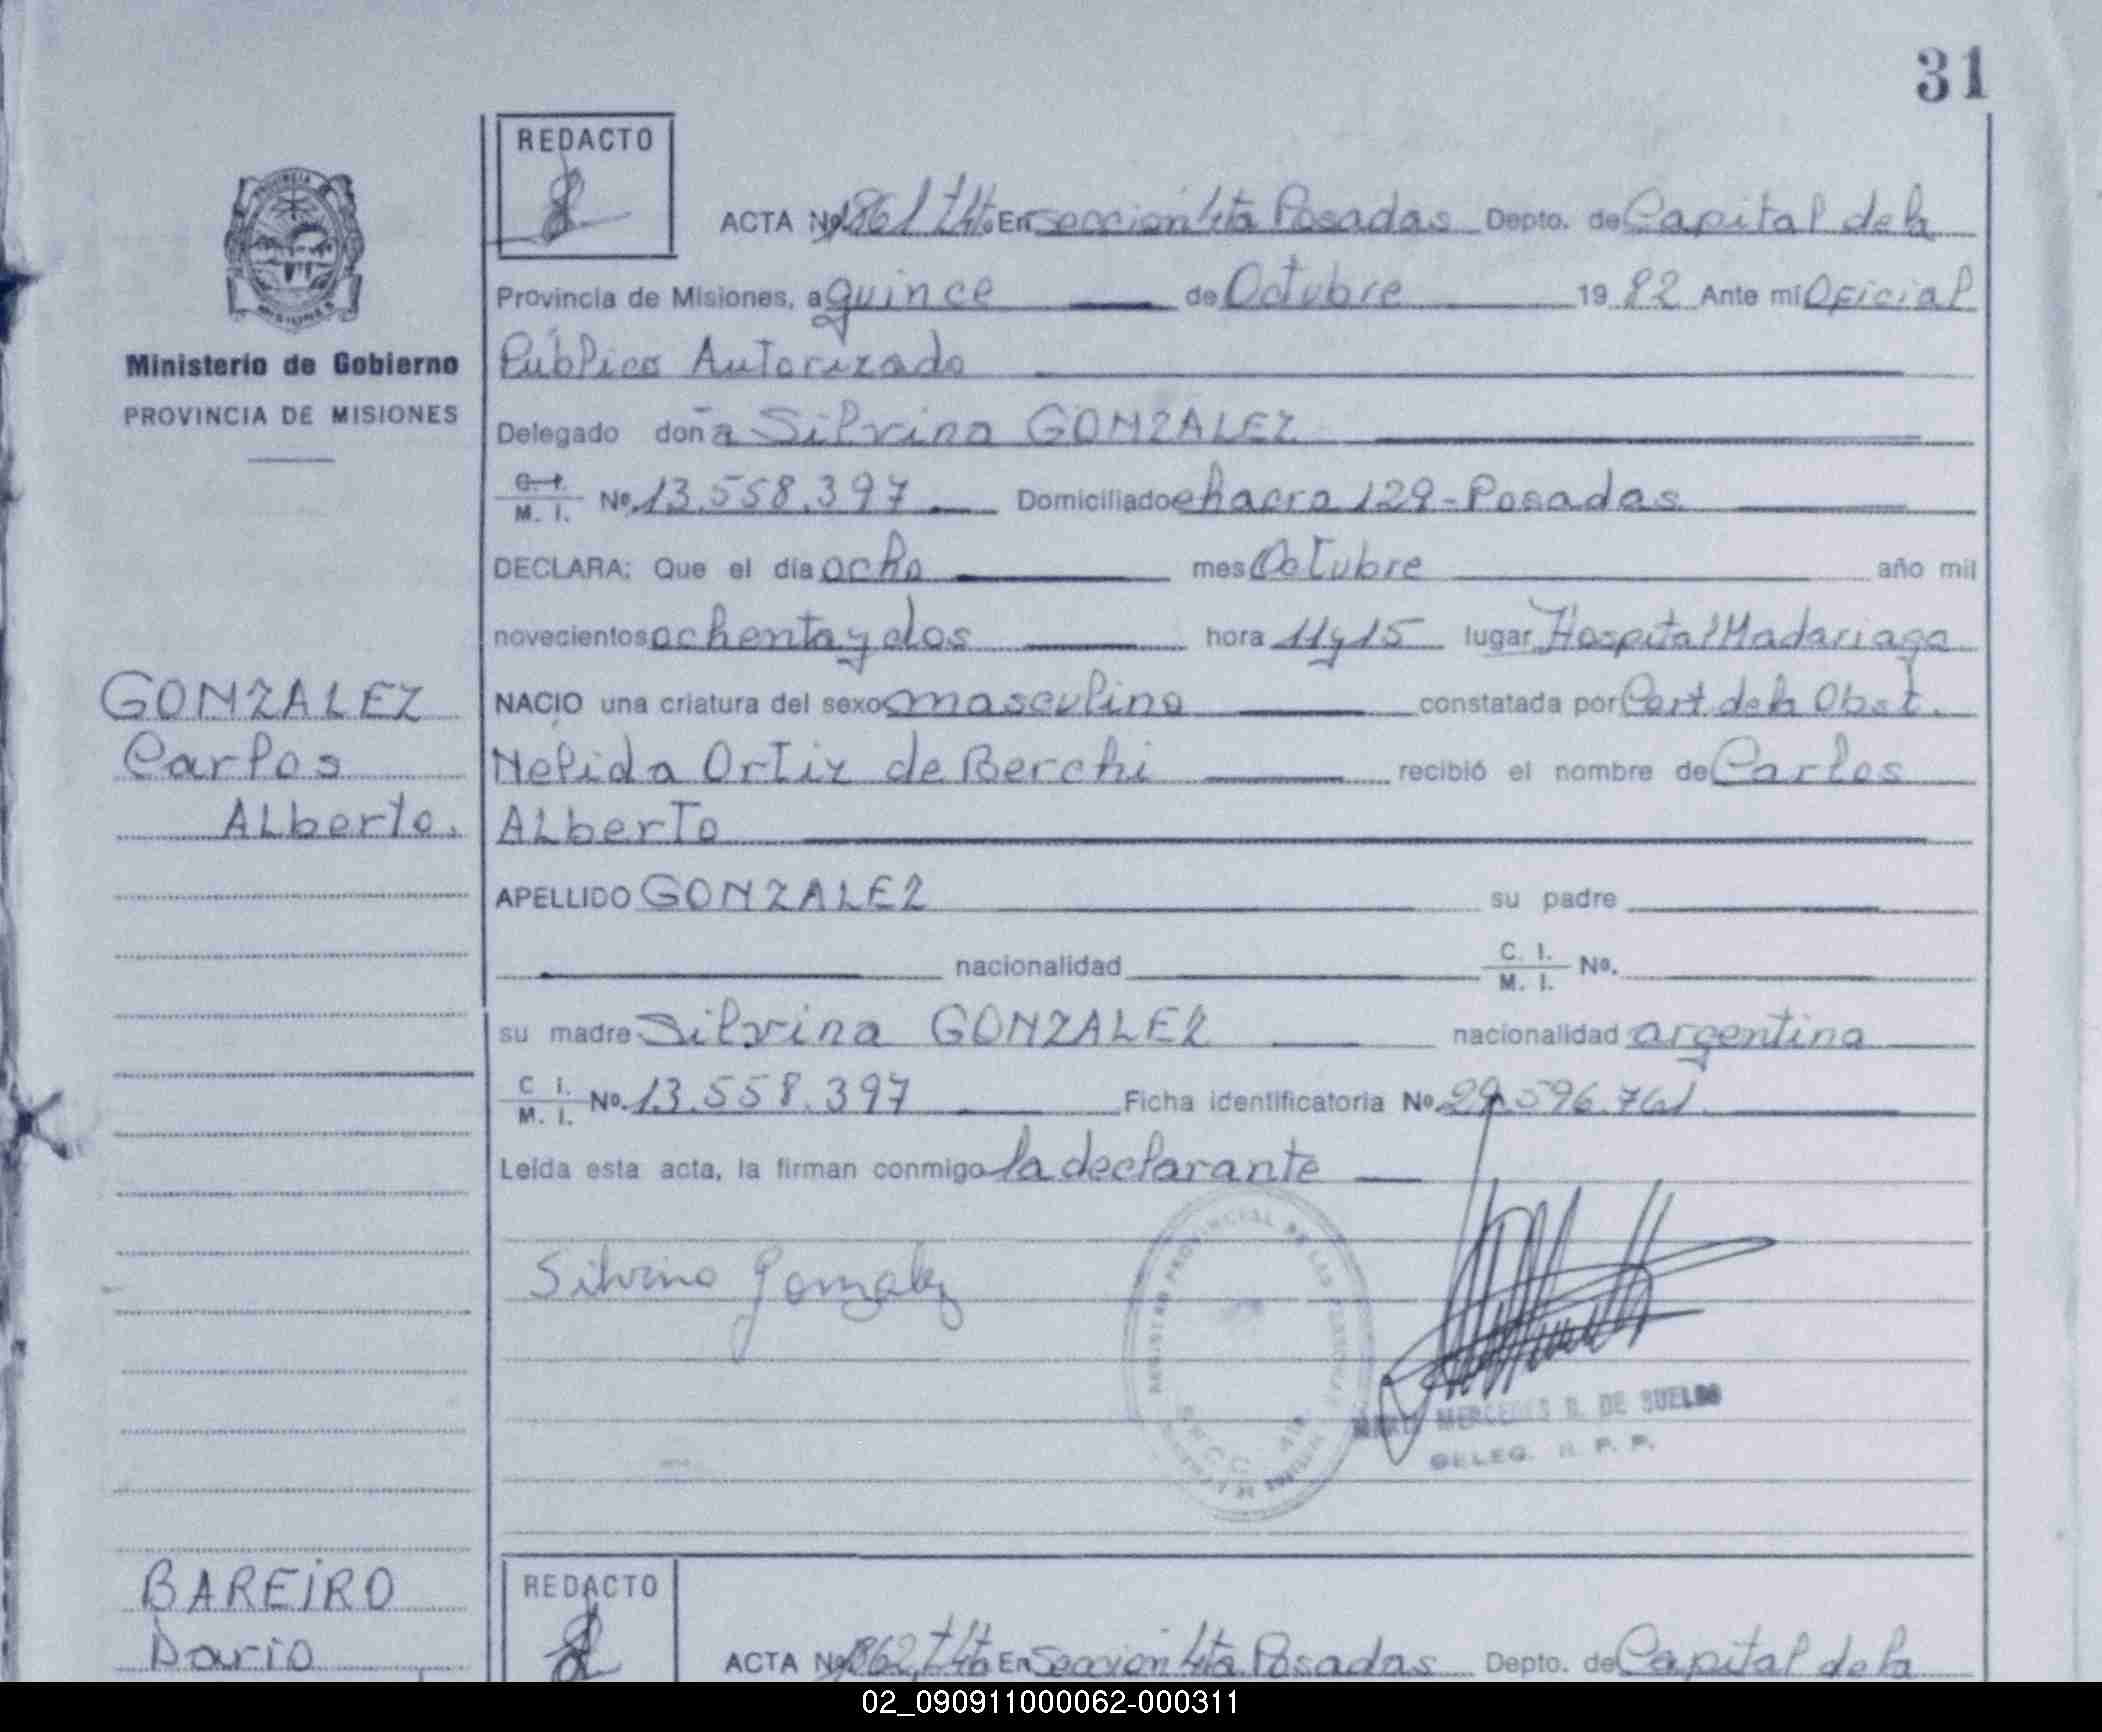 31
REDACTO
ACTA Nº 1861 Tº 4to En seccion 4ta Posadas Depto. de Capital de la
Provincia de Misiones, a quince de Octubre 1982 Ante mi Oficial
Público Autorizado
Delegado doña Silvina GONZALEZ
C. I. M. I. Nº 13.558.397 Domiciliado chacra 129 - Posadas
DECLARA: Que el día ocho mes Octubre año mil
novecientos ochenta y dos hora 11 y 15 lugar Hospital Madariaga
NACIO una criatura del sexo masculino constatada por Cert de la Obst.
Nelida Ortiz de Berchi recibió el nombre de Carlos
Alberto
APELLIDO GONZALEZ su padre
nacionalidad C. I. M. I. Nº.
su madre Silvina GONZALEZ nacionalidad argentina
C. I. M. I. Nº. 13.558.397 Ficha identificatoria Nº 29.596.761
Leída esta acta, la firman conmigo la declarante
Silvina Gonzalez
MERCEDES R. DE SUELDO
DELEG. R. P. P.
PROVINCIA
MISIONES
Ministerio de Gobierno
PROVINCIA DE MISIONES
GONZALEZ
Carlos
Alberto.
REGISTRO PROVINCIAL DE LAS PERSONAS
SECC. 4ta
BAREIRO
Dario
REDACTO
ACTA Nº 1862 Tº 4to En Seccion 4ta Posadas Depto. de Capital de la
02_090911000062-000311